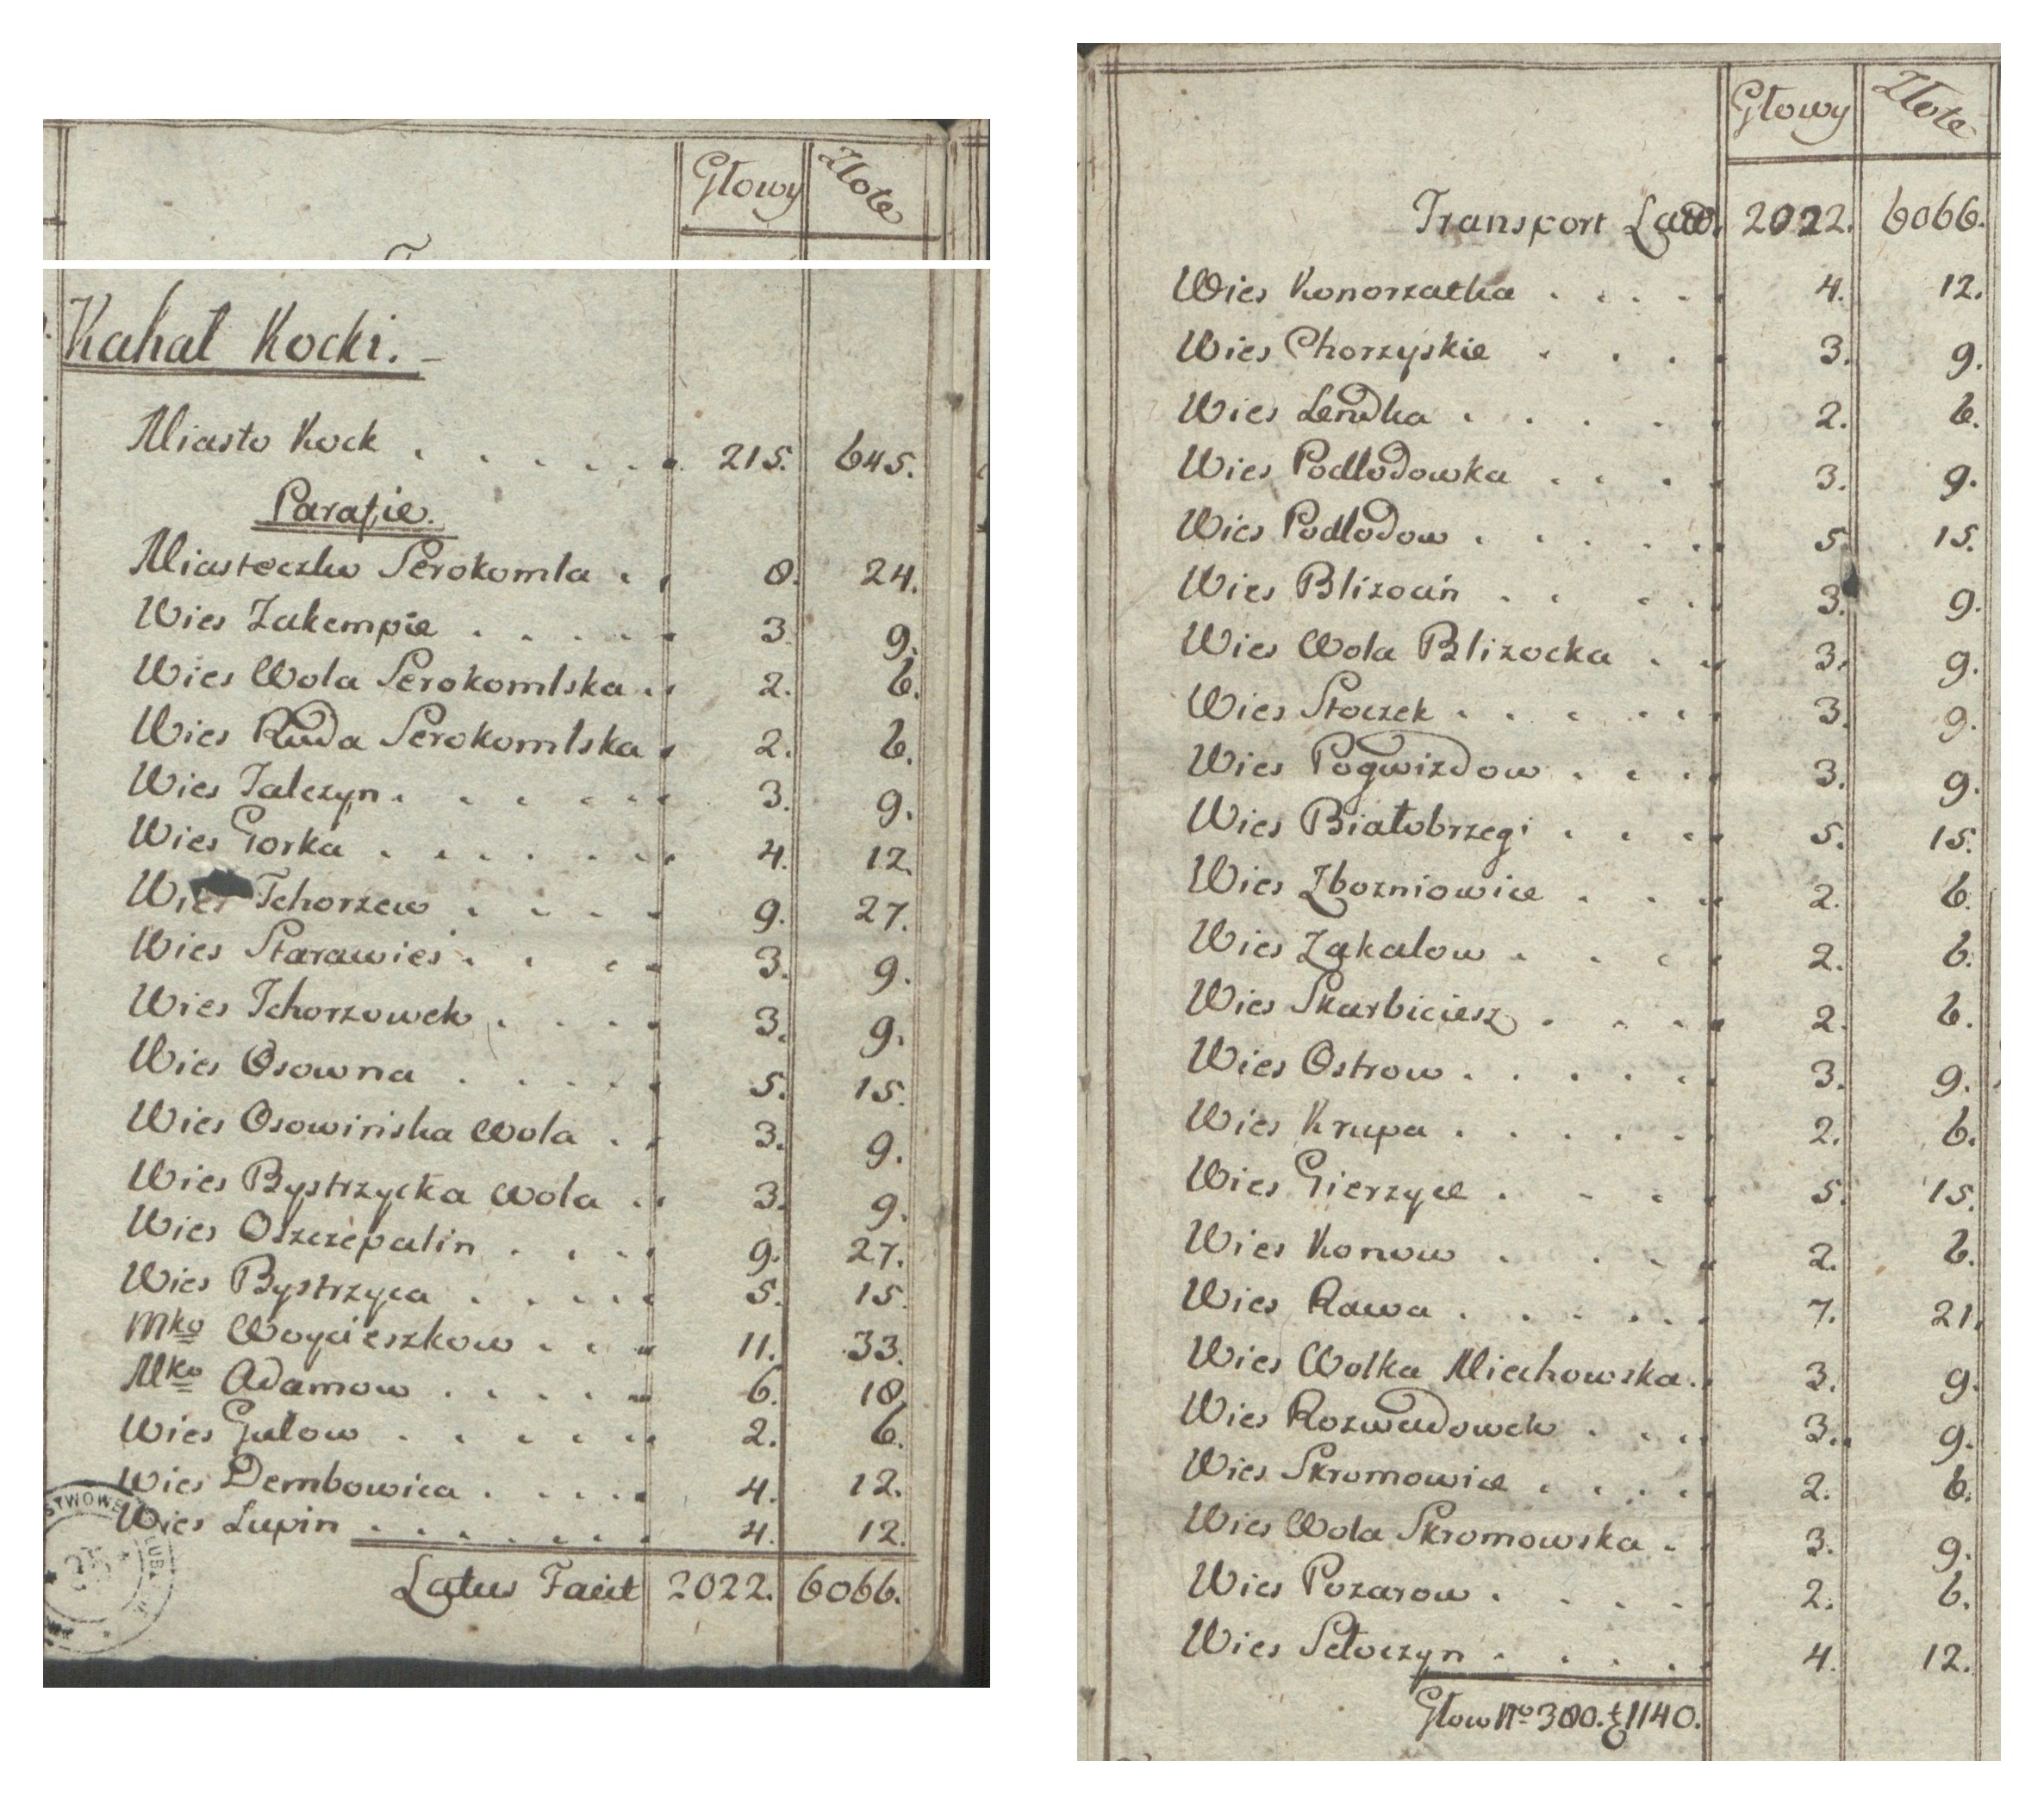 Głowy Złote
Kahał Kocki. -
Miasto Kock . . . . . . 215. 645.
Parafie.
Miasteczko Serokomla . . 8. 24.
Wies Zakempie . . . . . 3. 9.
Wies Wola Serokomlska . . 2. 6.
Wies Ruda Serokomlska . 2. 6.
Wies Talczyn . . . . . . 3. 9.
Wies Gorka . . . . . . . 4. 12.
Wies Tchorzew . . . . 9. 27.
Wies Starawies . . . . 3. 9.
Wies Tchorzowek . . . . 3. 9.
Wies Osowna . . . . . 5. 15.
Wies Osowińska Wola . . 3. 9.
Wies Bystrzycka Wola . . 3. 9.
Wies Oszczepalin . . . . 9. 27.
Wies Bystrzyca . . . . . 5. 15.
Mko Woycieszkow . . . 11. 33.
Mko Adamow . . . . . 6. 18.
Wies Gulow . . . . . . 2. 6.
Wies Dembowica . . . . . 4. 12.
Wies Lupin . . . . . . . 4. 12.
Latus Facit 2022. 6066.
Głowy Złote
Transport Lat. 2022. 6066.
Wies Konorzatka . . . . 4. 12.
Wies Chorzyskie . . . . 3. 9.
Wies Lendka . . . . . 2. 6.
Wies Podlodowka . . . . 3. 9.
Wies Podlodow . . . . . . 5. 15.
Wies Blizocin . . . . 3. 9.
Wies Wola Blizocka . . 3. 9.
Wies Stoczek . . . . . . 3. 9.
Wies Pogwizdow . . . . 3. 9.
Wies Białobrzegi . . . . 5. 15.
Wies Zbozniowice . . . 2. 6.
Wies Zakalow . . . . 2. 6.
Wies Skarbiciesz . . . . 2. 6.
Wies Ostrow . . . . . 3. 9.
Wies Krupa . . . . . 2. 6.
Wies Gierzyce . . . . 5. 15.
Wies Konow . . . . . 2. 6.
Wies Rawa . . . . . 7. 21.
Wies Wolka Miechowska . . 3. 9.
Wies Rozwadowek . . . . 3. 9.
Wies Skromowice . . . . . 2. 6.
Wies Wola Skromowska . . 3. 9.
Wies Pozarow . . . . . 2. 6.
Wies Sętoczyn . . . . . 4. 12.
Głow No 380. zł 1140.